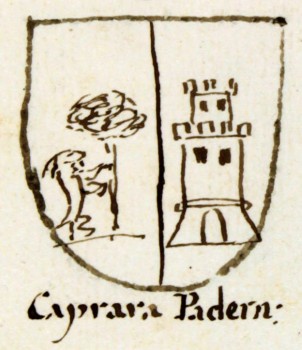 Caprara Padern: